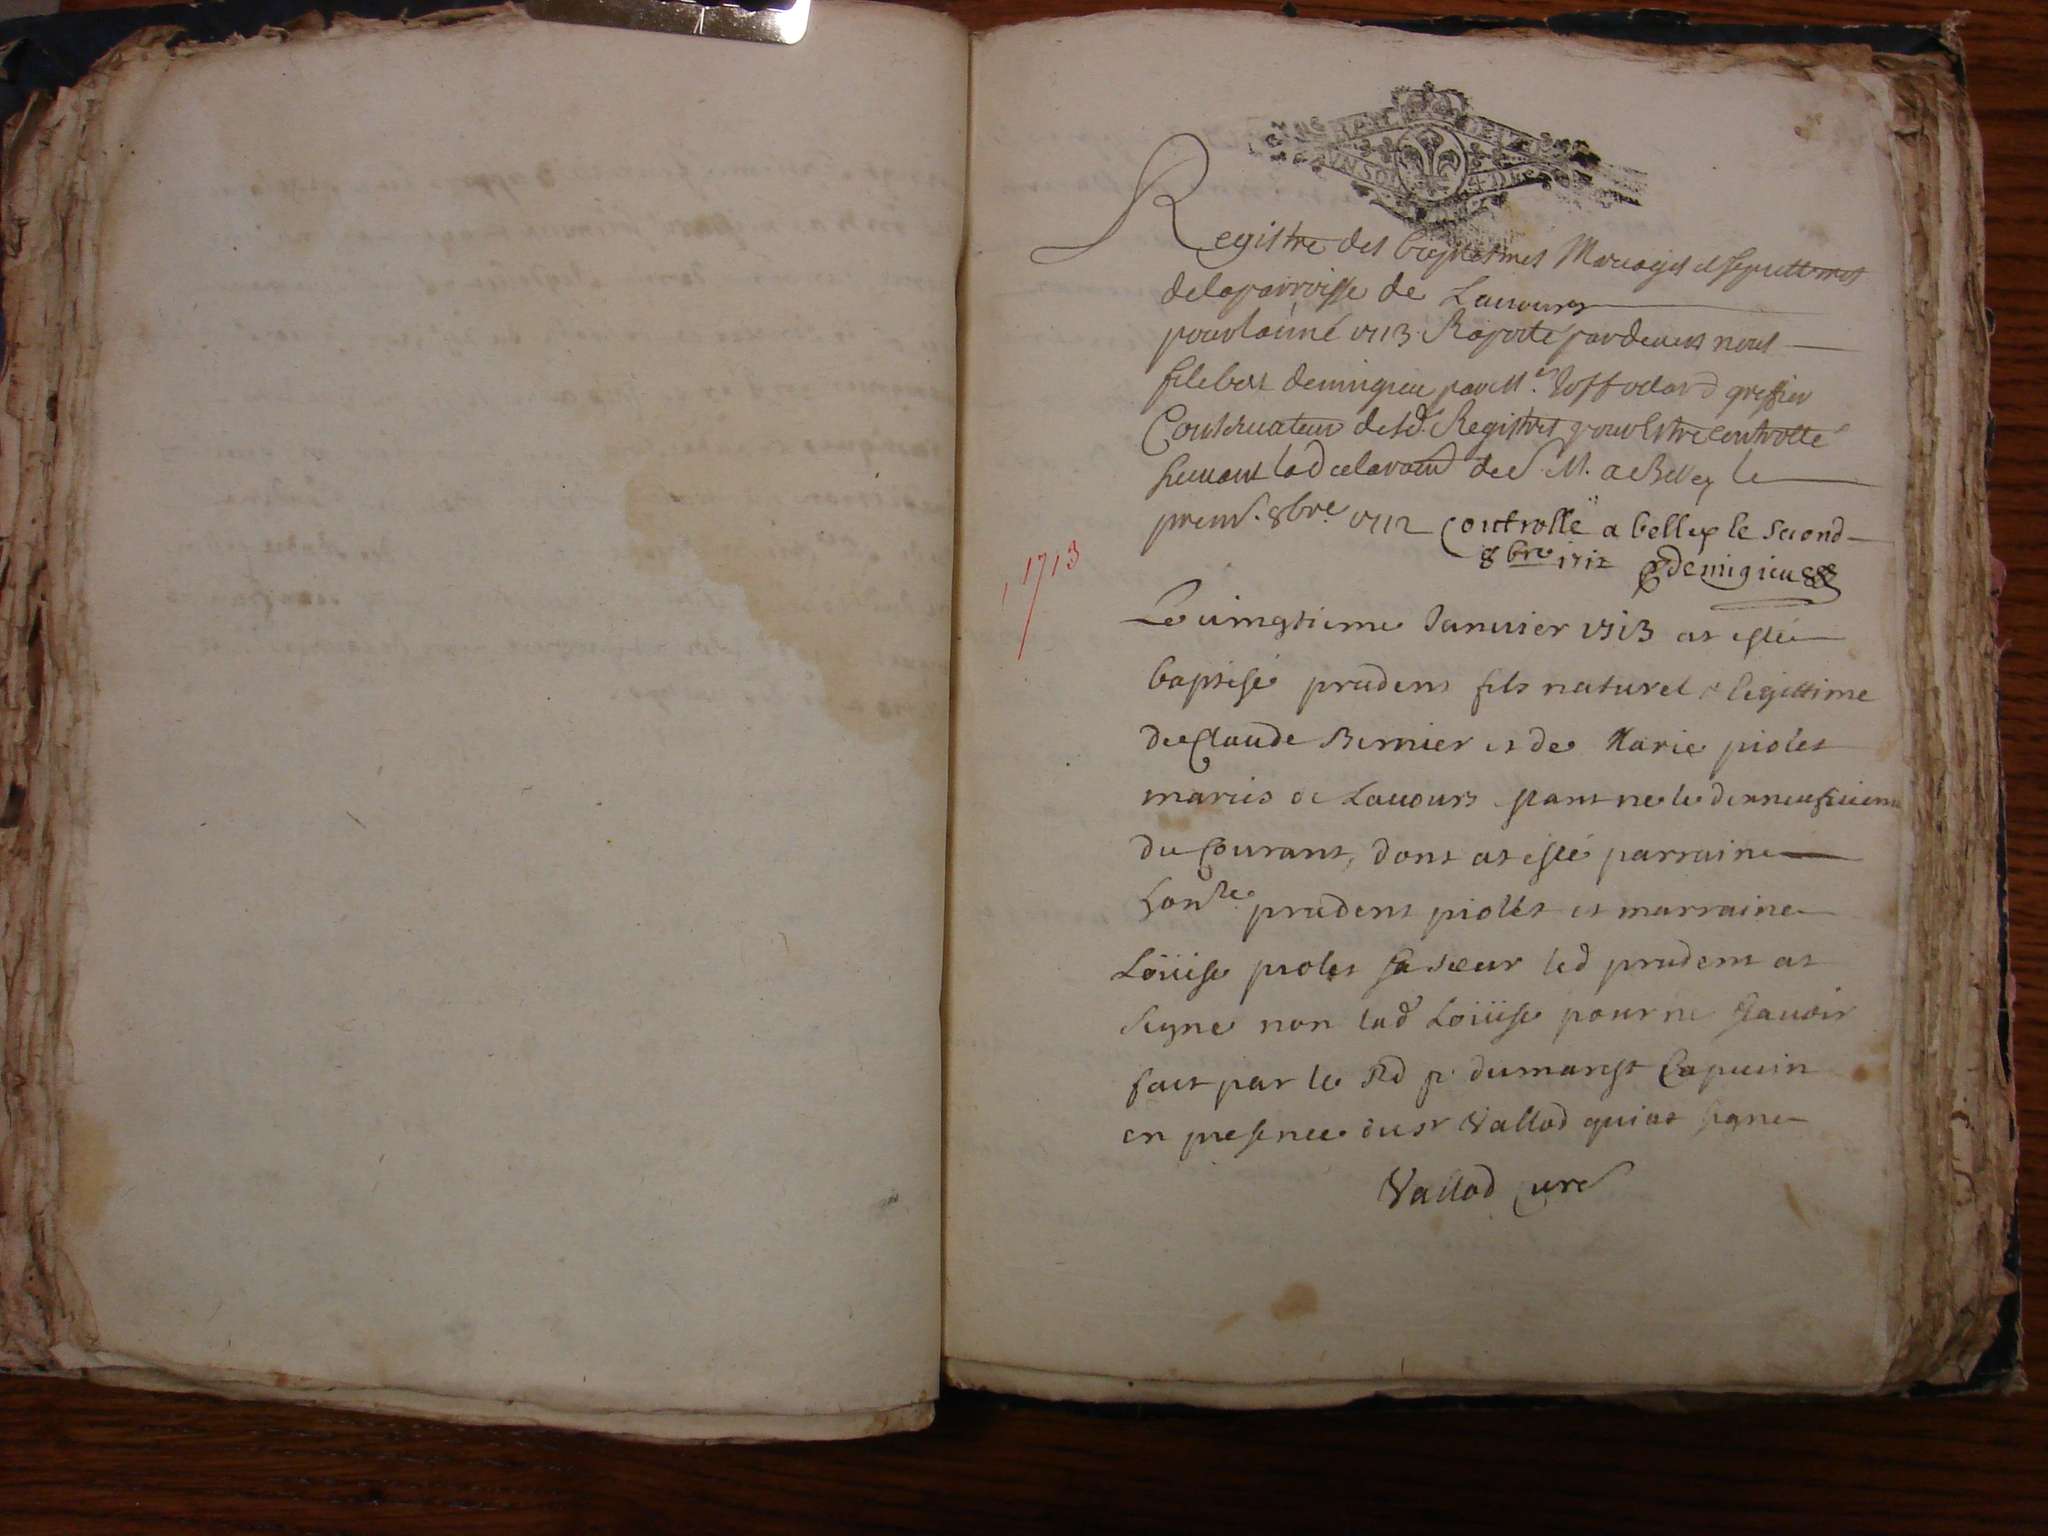 Registre des baptesmes Mariages et sepultures
de la parroisse de Lauours
pour lanné 1713 Raporté pardeuers nous
filebert demigieu par Mr. Joffo greffier
Conseruateur desd. Registres pour Estre controllé
suiuant lad declaraõn de S. M. a Belley le
premr. 8bre 1712 Controllé a belley le second
8bre 1712 demigieu
1713
Le uingtieme Januier 1713 at esté
baptisé prudent fils naturel & legittime
de Claude Bernier et de Marie piolet
mariés de Lauours estant ne le dixneufuieme
du Courant, dont at esté parraine
honble prudent piollet et marraine
Loüise piolet sa sœur led prudent at
signe non lad Loüise pour ne scauoir
fait par le Rd p. dumarest Capucin
en presence du sr Vallod qui at signe
Vallod curé